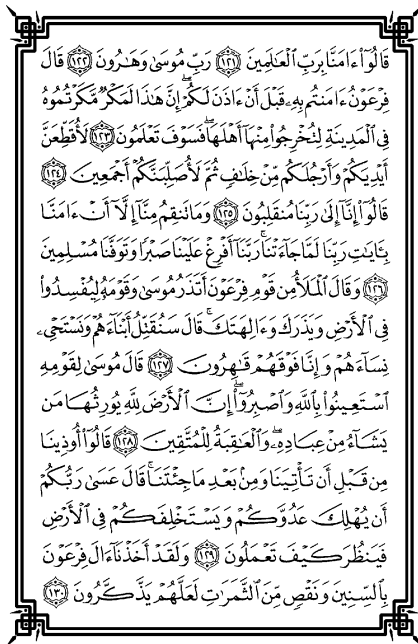 قَالُوٓا۟ ءَامَنَّا بِرَبِّ ٱلْعَٰلَمِينَ ١٢١ رَبِّ مُوسَىٰ وَهَٰرُونَ ١٢٢ قَالَ
فِرْعَوْنُ ءَامَنتُم بِهِۦ قَبْلَ أَنْ ءَاذَنَ لَكُمْ ۖ إِنَّ هَٰذَا لَمَكْرٌ مَّكَرْتُمُوهُ
فِى ٱلْمَدِينَةِ لِتُخْرِجُوا۟ مِنْهَآ أَهْلَهَا ۖ فَسَوْفَ تَعْلَمُونَ ١٢٣ لَأُقَطِّعَنَّ
أَيْدِيَكُمْ وَأَرْجُلَكُم مِّنْ خِلَٰفٍ ثُمَّ لَأُصَلِّبَنَّكُمْ أَجْمَعِينَ ١٢٤
قَالُوٓا۟ إِنَّآ إِلَىٰ رَبِّنَا مُنقَلِبُونَ ١٢٥ وَمَا تَنقِمُ مِنَّآ إِلَّآ أَنْ ءَامَنَّا
بِـَٔايَٰتِ رَبِّنَا لَمَّا جَآءَتْنَا ۚ رَبَّنَآ أَفْرِغْ عَلَيْنَا صَبْرًا وَتَوَفَّنَا مُسْلِمِينَ
١٢٦ وَقَالَ ٱلْمَلَأُ مِن قَوْمِ فِرْعَوْنَ أَتَذَرُ مُوسَىٰ وَقَوْمَهُۥ لِيُفْسِدُوا۟
فِى ٱلْأَرْضِ وَيَذَرَكَ وَءَالِهَتَكَ ۚ قَالَ سَنُقَتِّلُ أَبْنَآءَهُمْ وَنَسْتَحْىِۦ
نِسَآءَهُمْ وَإِنَّا فَوْقَهُمْ قَٰهِرُونَ ١٢٧ قَالَ مُوسَىٰ لِقَوْمِهِ
ٱسْتَعِينُوا۟ بِٱللَّهِ وَٱصْبِرُوٓا۟ ۖ إِنَّ ٱلْأَرْضَ لِلَّهِ يُورِثُهَا مَن
يَشَآءُ مِنْ عِبَادِهِۦ ۖ وَٱلْعَٰقِبَةُ لِلْمُتَّقِينَ ١٢٨ قَالُوٓا۟ أُوذِينَا
مِن قَبْلِ أَن تَأْتِيَنَا وَمِنۢ بَعْدِ مَا جِئْتَنَا ۚ قَالَ عَسَىٰ رَبُّكُمْ
أَن يُهْلِكَ عَدُوَّكُمْ وَيَسْتَخْلِفَكُمْ فِى ٱلْأَرْضِ
فَيَنظُرَ كَيْفَ تَعْمَلُونَ ١٢٩ وَلَقَدْ أَخَذْنَآ ءَالَ فِرْعَوْنَ
بِٱلسِّنِينَ وَنَقْصٍ مِّنَ ٱلثَّمَرَٰتِ لَعَلَّهُمْ يَذَّكَّرُونَ ١٣٠